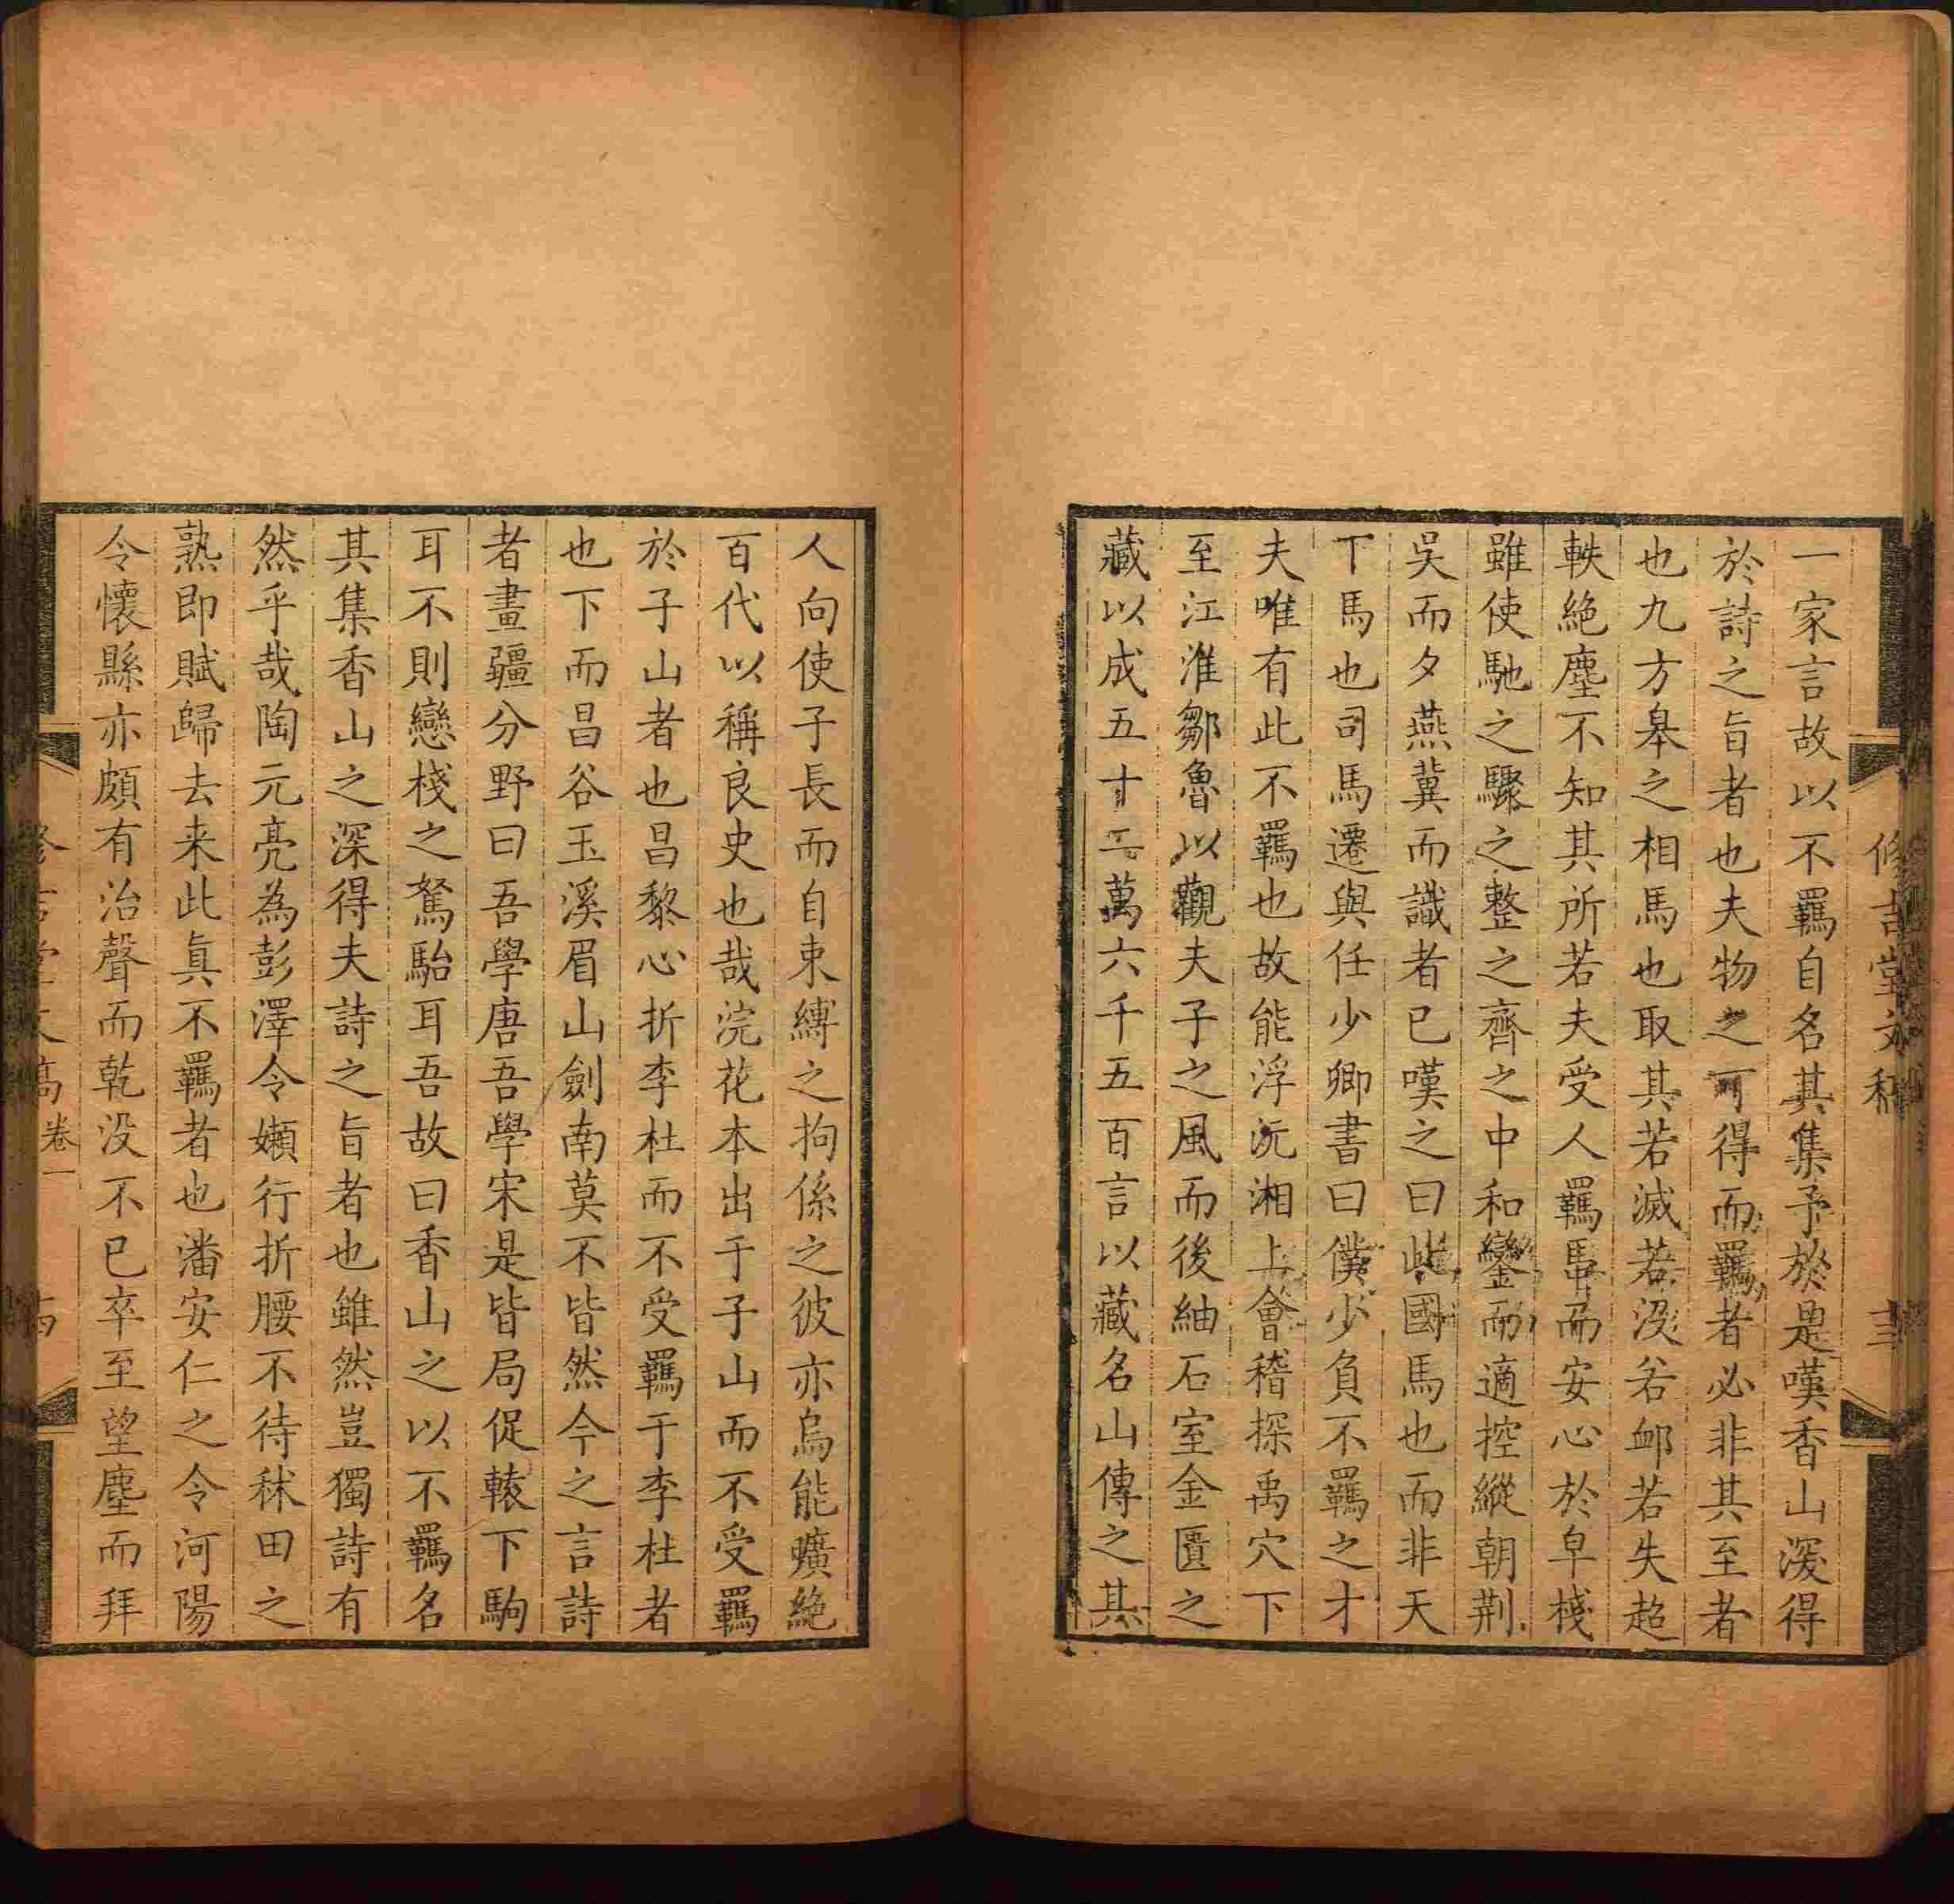 一家言故以不羈自名其集予於是嘆香山深得
於詩之旨者也夫物之可得而羈者必非其至者
也九方皋之相馬也取其若滅若没若䘏若失超
軼絶塵不知其所若夫受人羈馽而安心於皁棧
雖使馳之驟之整之齊之中和鑾而適控縱朝荆
吳而夕燕冀而識者已嘆之曰此國馬也而非天
下馬也司馬遷與任少卿書曰僕少負不羈之才
夫唯有此不羈也故能浮沅湘上會稽探禹穴下
至江淮鄒魯以觀夫子之風而後紬石室金匱之
藏以成五十二萬六千五百言以藏名山傳之其
人向使子長而自束縛之拘係之彼亦烏能曠絶
百代以稱良史也哉浣花本出于子山而不受羈
於子山者也昌黎心折李杜而不受羈于李杜者
也下而昌谷玉溪眉山劍南莫不皆然今之言詩
者畫疆分野曰吾學唐吾學宋是皆局促轅下駒
耳不則戀棧之駑駘耳吾故曰香山之以不羈名
其集香山之深得夫詩之旨者也雖然豈獨詩有
然乎哉陶元亮為彭澤令嬾行折腰不待秫田之
熟即賦歸去来此真不羈者也潘安仁之令河陽
令懷縣亦頗有治聲而乾没不已卒至望塵而拜
修吉堂文稿 卷一 十四